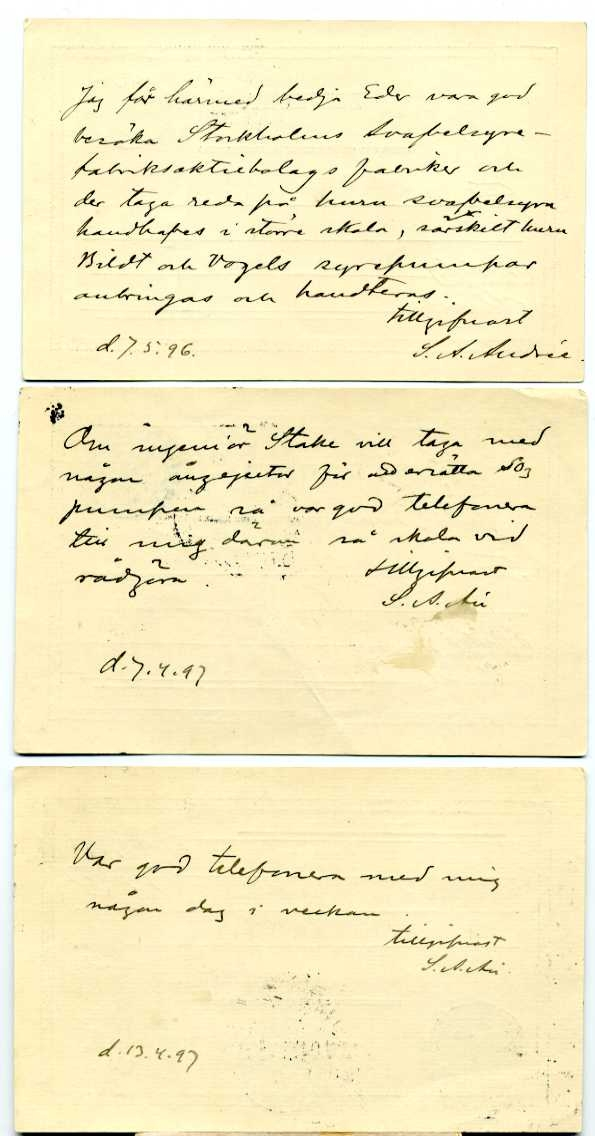 Jag får härmed bedja Eder vara god
besöka Stockholms Svafvelsyre-
fabriksaktiebolags fabriker och
der taga reda på huru svafvelsyra
handhafves i större skala, särskilt huru
Bildt och Vogels syrepumpar
anbringas och handteras.
tillgifnast
d. 7.5.96.
S. A. Andrée.
Om ingeniör Stake vill taga med
någon ångejektor för att ersätta
pumpen så var god telefonera
till mig därom så skola vid
rådgöra.
tillgifnast
S. A. Aée
d. 7.4.97
Var god telefonera med mig
någon dag i veckan.
tillgifnast
S. A. Aée.
d. 13.4.97